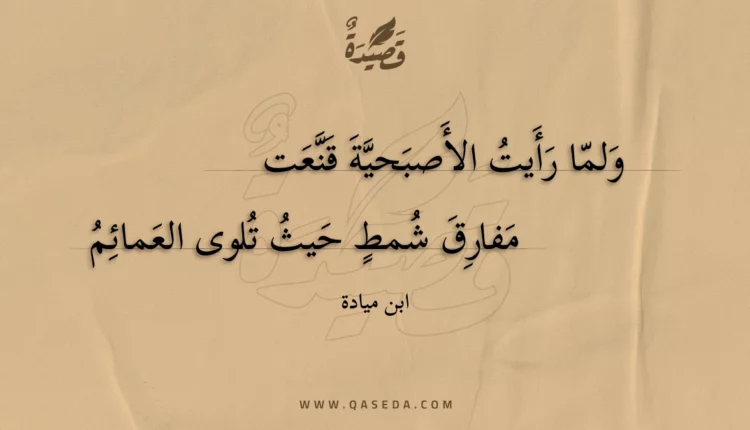 قَصِيْدَةٌ
وَلمّا رَأَيتُ الأَصبَحيَّةَ قَنَّعَت
مَفارِقَ شُمطٍ حَيثُ تُلوى العَمائِمُ
ابن ميادة
WWW.QASEDA.COM